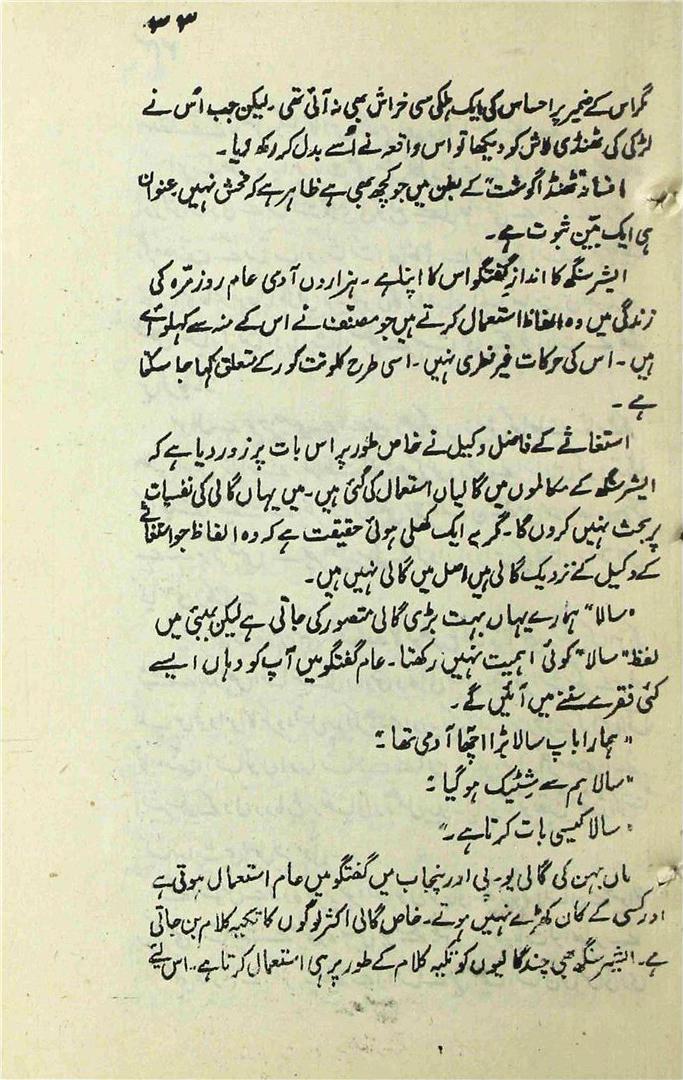 ۳۳
مگر اس کے ضمیر پر احساس کی ایک ہلکی سی خراش بھی نہ آئی تھی۔ لیکن جب اُس نے
لڑکی کی ٹھنڈی لاش کو دیکھا تو اس واقعہ نے اُسے بدل کر رکھ دیا۔
افسانہ "ٹھنڈا گوشت" کے بطن میں جو کچھ بھی ہے ظاہر ہے کہ فحش نہیں، عنوان
ہی ایک بیّن ثبوت ہے۔
ایشر سنگھ کا اندازِ گفتگو اس کا اپنا ہے۔ ہزاروں آدمی عام روزمرّہ کی
زندگی میں وہ الفاظ استعمال کرتے ہیں جو مصنّف نے اس کے منہ سے کہلوائے
ہیں۔ اس کی حرکات غیر فطری نہیں۔ اسی طرح کلونت کور کے متعلق کہا جا سکتا
ہے۔
استغاثے کے فاضل وکیل نے خاص طور پر اس بات پر زور دیا ہے کہ
ایشر سنگھ کے مکالموں میں گالیاں استعمال کی گئی ہیں۔ میں یہاں گالی کی نفسیات
پر بحث نہیں کروں گا۔ مگر یہ ایک کھلی ہوئی حقیقت ہے کہ وہ الفاظ جو استغاثے
کے وکیل کے نزدیک گالی ہیں اصل میں گالی نہیں ہیں۔
"سالا" ہمارے یہاں بہت بڑی گالی متصور کی جاتی ہے لیکن بمبئی میں
لفظ "سالا" کوئی اہمیت نہیں رکھتا۔ عام گفتگو میں آپ کو وہاں ایسے
کئی فقرے سننے میں آئیں گے۔
"ہمارا باپ سالا بڑا اچھا آدمی تھا۔"
"سالا ہم سے مِشٹیک ہو گیا۔"
"سالا کیسی بات کرتا ہے۔"
ماں بہن کی گالی یو۔پی اور پنجاب میں گفتگو میں عام استعمال ہوتی ہے
اور کسی کے کان کھڑے نہیں ہوتے۔ خاص گالی اکثر لوگوں کا تکیہ کلام بن جاتی
ہے۔ ایشر سنگھ بھی چند گالیوں کو تکیہ کلام کے طور پر ہی استعمال کرتا ہے۔ اس لئے